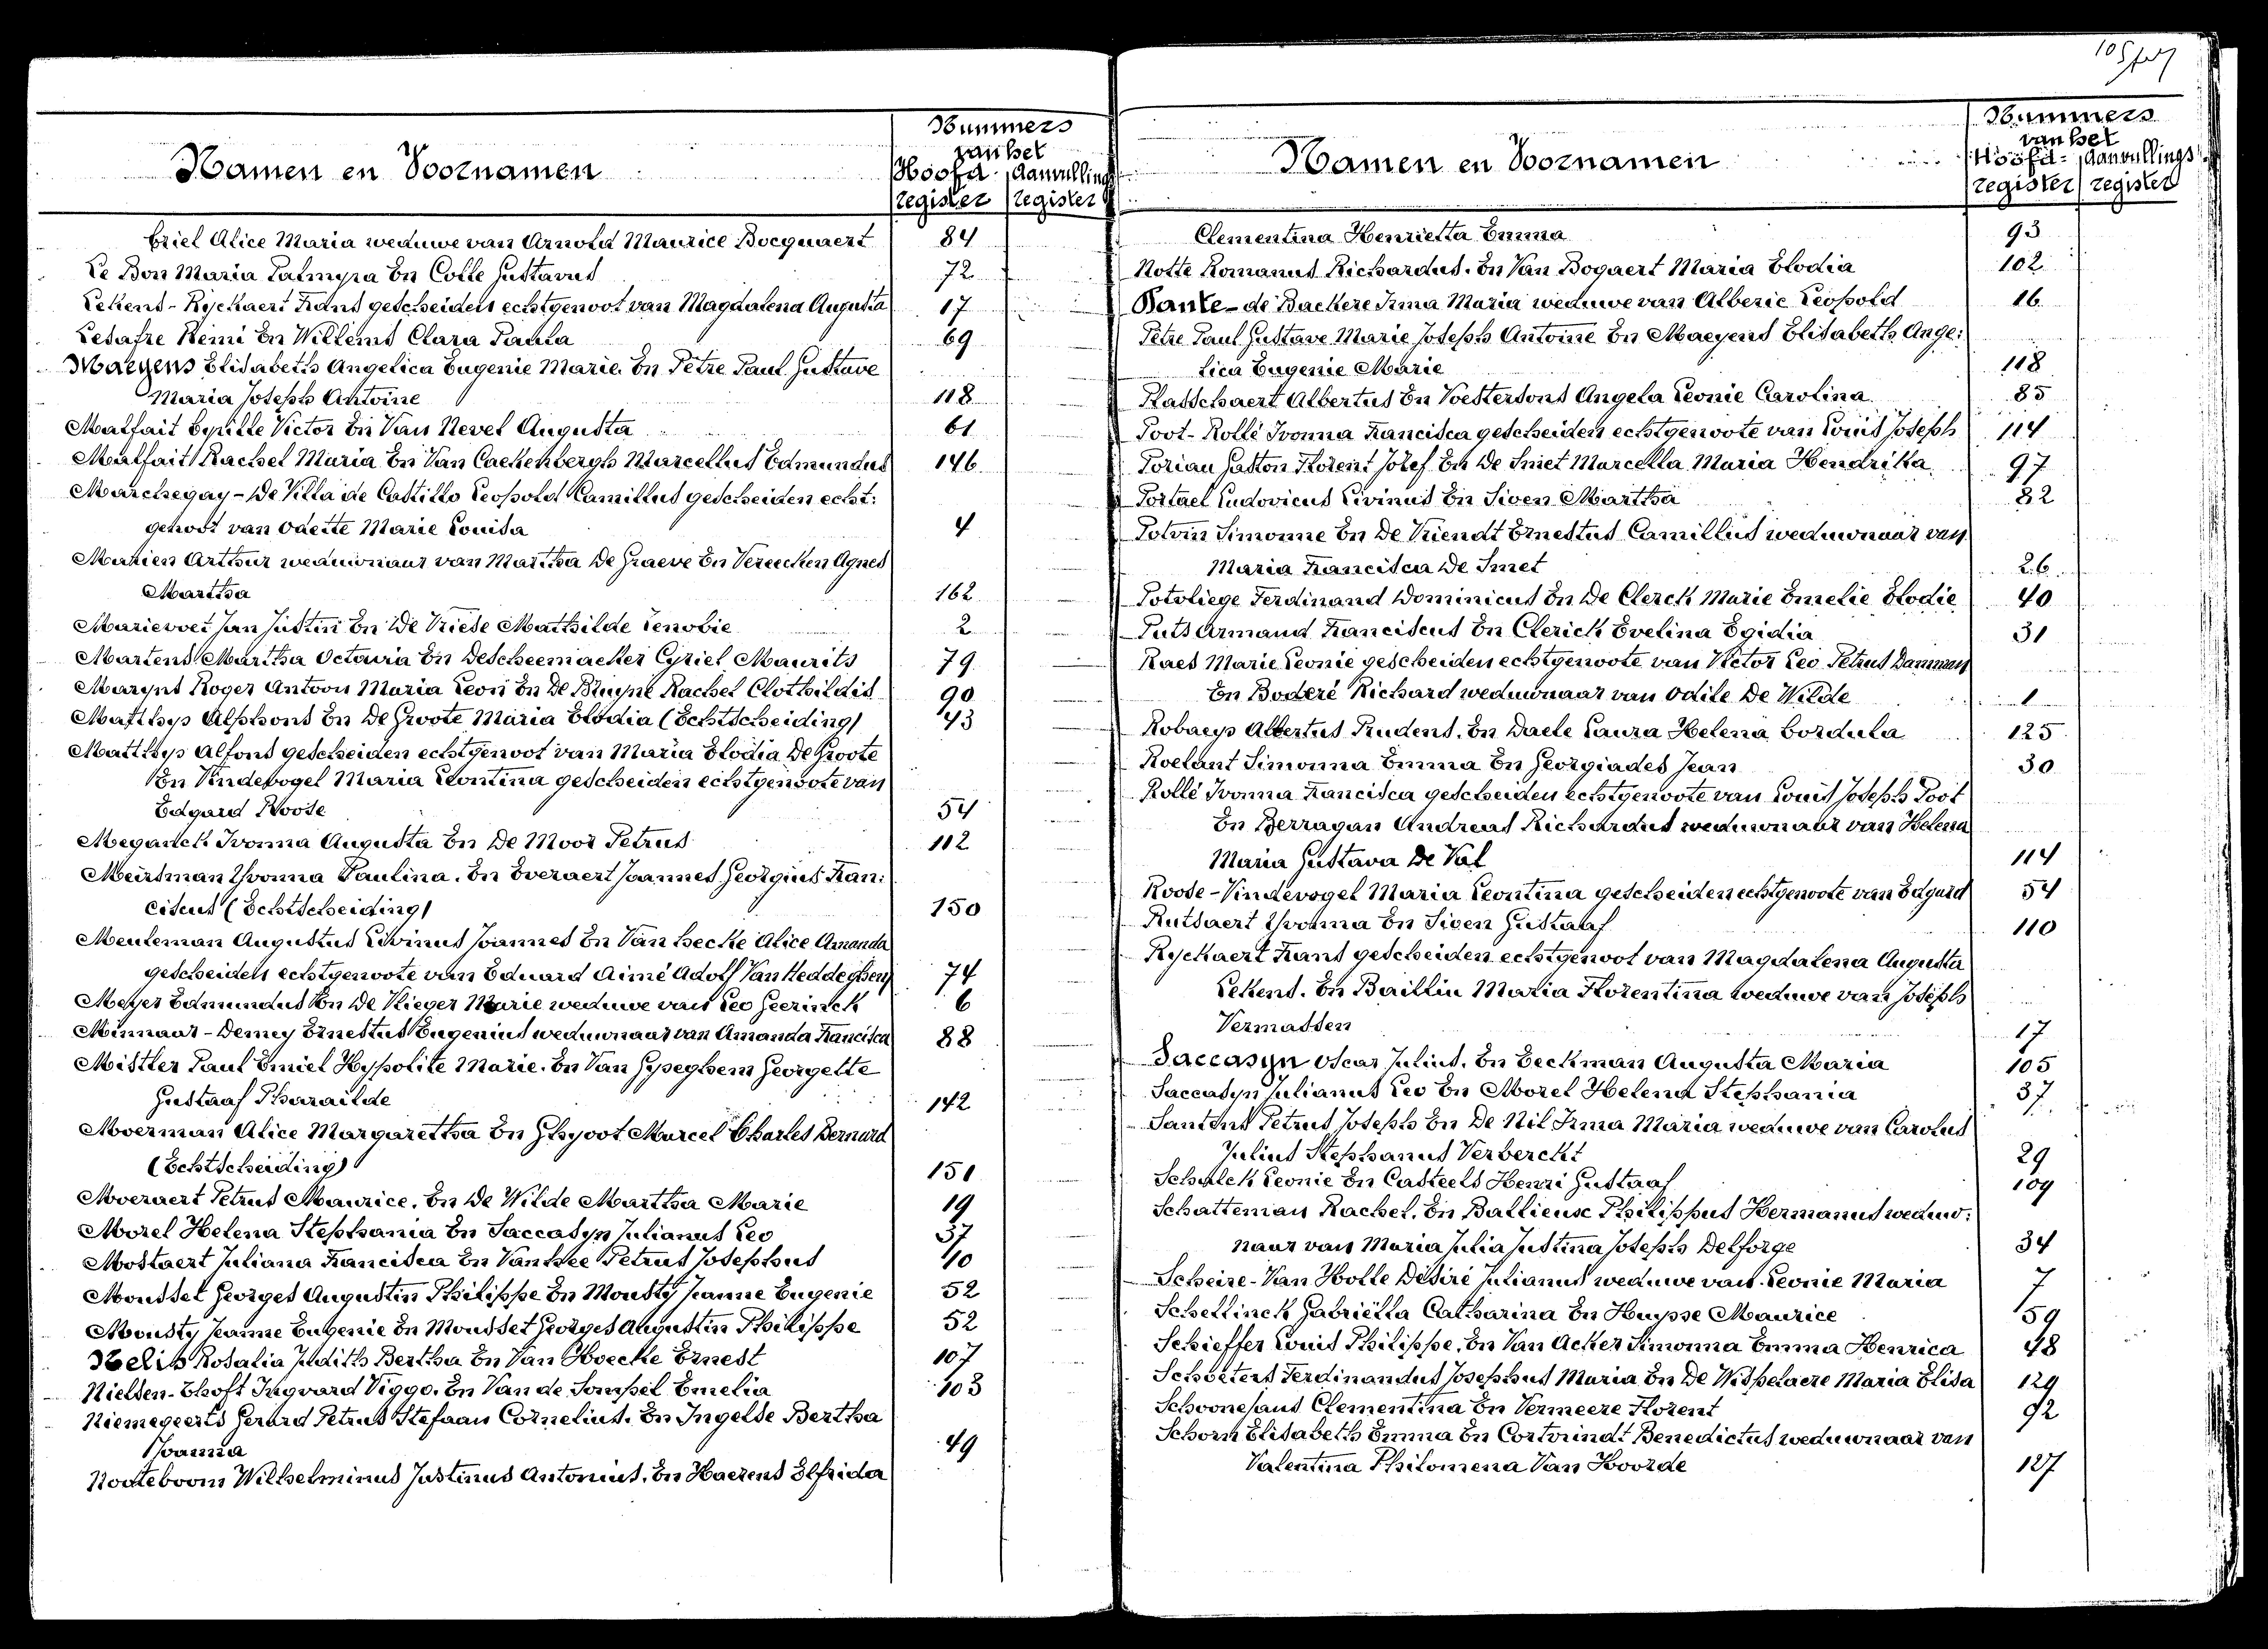 Namen en Voornamen
Nummers
van het
Hoofd- Aanvullings
register register
Criel Alice Maria weduwe van Arnold Maurice Bocquaert 84
Le Bon Maria Palmyra En Colle Gustavus 72
Lekens - Ryckaert Frans gescheiden echtgenoot van Magdalena Augusta 17
Lesafre Remi En Willems Clara Paula 69
Maeyens Elisabeth Angelica Eugenie Marie En Petre Paul Gustave
Maria Joseph Antoine 118
Malfait Cyrille Victor En Van Nevel Augusta 61
Malfait Rachel Maria En Van Caekenbergh Marcellus Edmundus 146
Marchegay - De Villa de Castillo Leopold Camillus gescheiden echt:
genoot van Odette Marie Louisa 4
Marien Arthur weduwnaar van Martha De Graeve En Vereecken Agnes
Martha 162
Marievoet Jan Justin En De Vriese Mathilde Zenobie 2
Martens Martha Octavia En Descheemaeker Cyriel Maurits 79
Maryns Roger Antoon Maria Leon En De Bruyne Rachel Clothildis 90
Matthys Alphons En De Groote Maria Elodia (Echtscheiding) 43
Matthys Alfons gescheiden echtgenoot van Maria Elodia De Groote
En Vindevogel Maria Leontina gescheiden echtgenoote van
Edgard Roose 54
Meganck Ivonna Augusta En De Moor Petrus 112
Meirsman Yvonna Paulina. En Everaert Joannes Georgius Fran:
ciscus (Echtscheiding) 150
Meuleman Augustus Livinus Joannes En Van hecke Alice Amanda
gescheiden echtgenoote van Eduard Aimé Adolf Van Heddeghem 74
Meyer Edmundus En De Vlieger Marie weduwe van Leo Geerinck 6
Minnaar - Demey Ernestus Eugenius weduwnaar van Amanda Francisca 88
Mistler Paul Emiel Hypolite Marie. En Van Gyseghem Georgette
Gustaaf Pharailde 142
Moerman Alice Margaretha En Ghyoot Marcel Charles Bernard
(Echtscheiding) 151
Moeraert Petrus Maurice. En De Wilde Martha Marie 19
Morel Helena Stephania En Saccasyn Julianus Leo 37
Mostaert Juliana Francisca En Vanhee Petrus Josephus 110
Mousset Georges Augustin Philippe En Mousty Jeanne Eugenie 52
Mousty Jeanne Eugenie En Mousset Georges Augustin Philippe 52
Nelis Rosalia Judith Bertha En Van Hoecke Ernest 107
Nielsen-Ehoft Ingvard Viggo. En Van de Sompel Emelia 103
Niemegeerts Gerard Petrus Stefaan Cornelius. En Ingelse Bertha
Joanna 49
Nooteboom Wilhelminus Justinus Antonius. En Haerens Elfrida
Namen en Voornamen
Nummers
van het
Hoofd- Aanvullings
register register
Clementina Henrietta Emma 93
Notte Romanus Richardus. En Van Bogaert Maria Elodia 102
Pante - de Backere Irma Maria weduwe van Alberic Leopold 16
Petre Paul Gustave Marie Joseph Antoine En Maeyens Elisabeth Ange:
lica Eugenie Marie 118
Plasschaert Albertus En Voestersons Angela Leonie Carolina 85
Poot - Rollé Ivonna Francisca gescheiden echtgenoote van Louis Joseph 114
Poriau Gaston Florent Jozef En De Smet Marcella Maria Hendrika 97
Portael Ludovicus Livinus En Siven Martha 82
Potvin Simonne En De Vriendt Ernestus Camillus weduwnaar van
Maria Francisca De Smet 26
Potvliege Ferdinand Dominicus En De Clerck Marie Emelie Elodie 40
Puts Armand Franciscus En Clerick Evelina Egidia 31
Raes Marie Leonie gescheiden echtgenoote van Victor Leo Petrus Damman
En Boderé Richard weduwnaar van Odile De Wilde 1
Robaeys Albertus Prudens. En Daele Laura Helena Cordula 125
Roelant Simonna Emma En Georgiades Jean 30
Rollé Ivonna Francisca gescheiden echtgenoote van Louis Joseph Poot
En Berragan Andreas Richardus weduwnaar van Helena
Maria Gustava De Val 114
Roose - Vindevogel Maria Leontina gescheiden echtgenoote van Edgard 54
Rutsaert Yvonna En Siven Gustaaf 110
Ryckaert Frans gescheiden echtgenoot van Magdalena Augusta
Lekens. En Baillin Maria Florentina weduwe van Joseph
Vermassen 17
Saccasyn Oscar Julius. En Eeckman Augusta Maria 105
Saccasyn Julianus Leo En Morel Helena Stephania 37
Santens Petrus Joseph En De Nil Irma Maria weduwe van Carolus
Julius Stephanus Verberckt 29
Schalck Leonie En Casteels Henri Gustaaf 109
Schatteman Rachel. En Ballieuse Philippus Hermanus weduw:
naar van Maria Julia Justina Joseph Delforge 34
Scheire - Van Holle Désiré Julianus weduwe van Leonie Maria 7
Schellinck Gabriëlla Catharina En Huysse Maurice 59
Schieffer Louis Philippe. En Van Acker Simonna Emma Henrica 48
Schoeters Ferdinandus Josephus Maria En De Wispelaere Maria Elisa 129
Schoonejans Clementina En Vermeere Florent 92
Schorn Elisabeth Emma En Cortvrindt Benedictus weduwnaar van
Valentina Philomena Van Hoorde 127